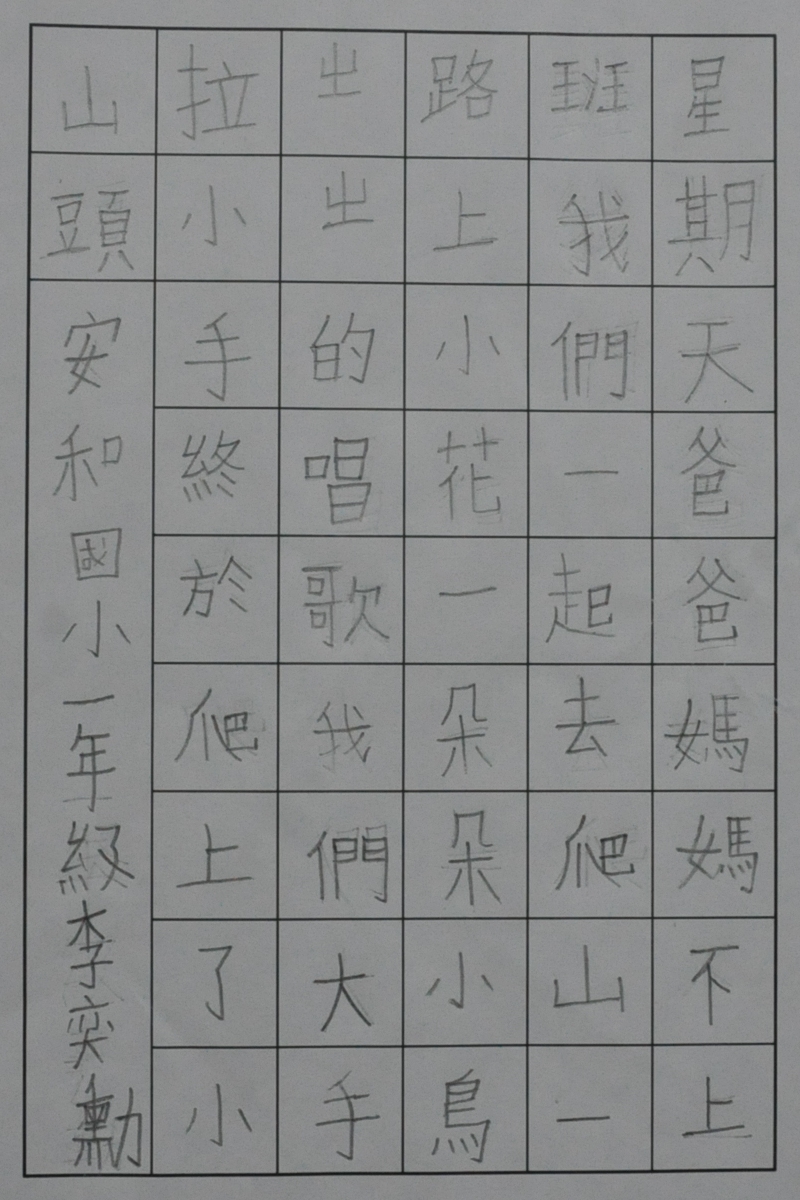 星期天爸爸媽媽不上
班我們一起去爬山一
路上小花一朵朵小鳥
出出的唱歌我們大手
拉小手終於爬上了小
山頭
安和國小一年級李奕勳